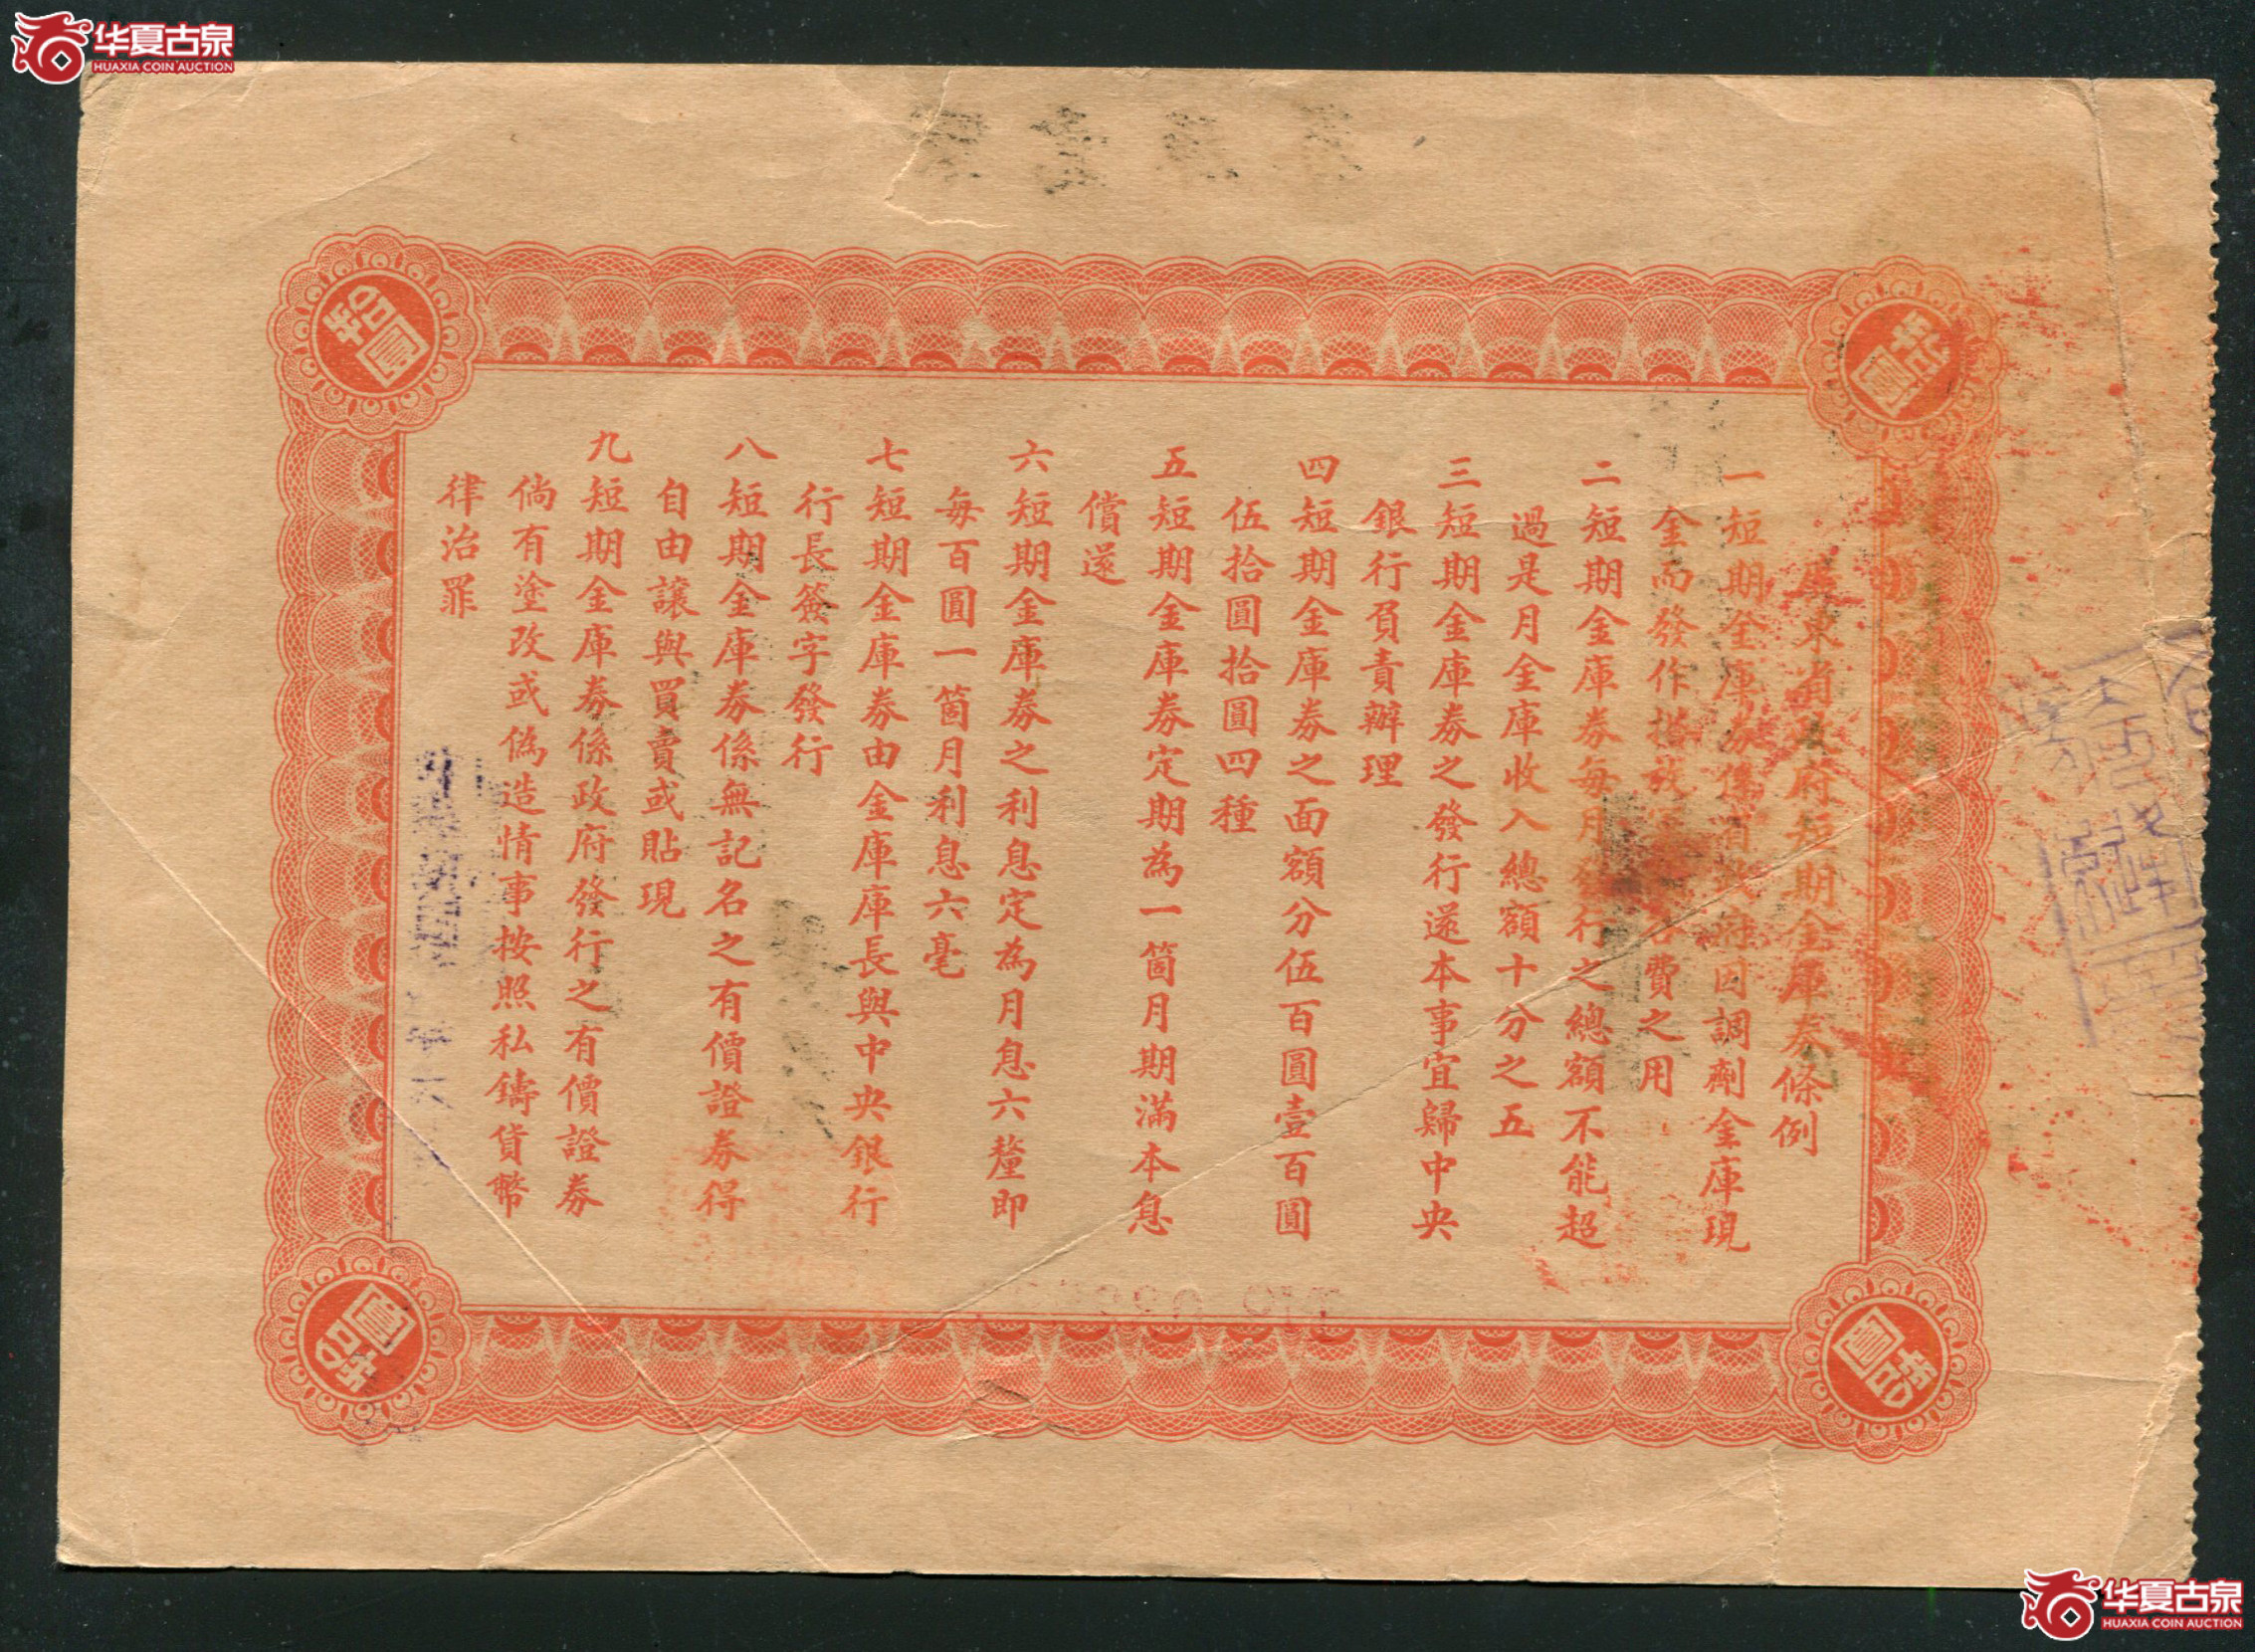 华夏古泉
HUAXIA COIN AUCTION
拾圓
拾圓
廣東省政府短期金庫券條例
一短期金庫券係因調劑金庫現
金而發作搭放費之用
二短期金庫券每月發行之總額不能超
過是月金庫收入總額十分之五
三短期金庫券之發行還本事宜歸中央
銀行負責辦理
四短期金庫券之面額分伍百圓壹百圓
伍拾圓拾圓四種
五短期金庫券定期為一箇月期滿本息
償還
六短期金庫券之利息定為月息六釐即
每百圓一箇月利息六毫
七短期金庫券由金庫庫長與中央銀行
行長簽字發行
八短期金庫券係無記名之有價證券得
自由讓與買賣或貼現
九短期金庫券係政府發行之有價證券
倘有塗改或偽造情事按照私鑄貨幣
律治罪
拾圓
拾圓
华夏古泉
HUAXIA COIN AUCTION